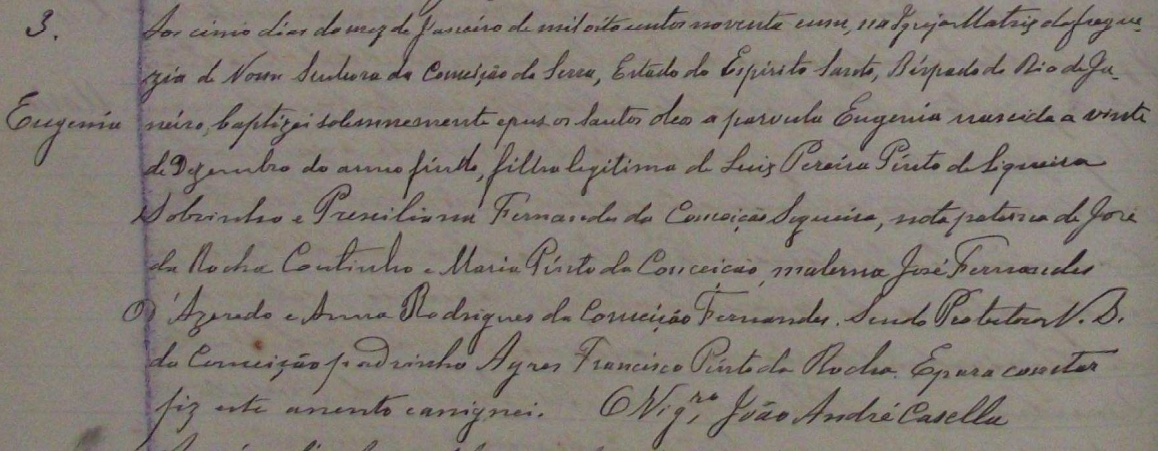 3.
Aos cinco dias do mez de Janeiro de mil oito centos noventa e um, na Igreja Matriz da fregue-
zia de Nossa Senhora da Conceição da Serra, Estado do Espirito Santo, Bispado do Rio de Ja-
Eugenia
neiro, baptizei solemnemente e puz os santos oleos a parvula Eugenia nascida a vinte
de Dezembro do anno findo, filha legitima de Luiz Pereira Pinto de Siqueira
Sobrinho e Presciliana Fernandes da Conceição Siqueira, neta paterna de José
da Rocha Coutinho e Maria Pinto da Conceição, materna José Fernandes
d'Azeredo e Anna Rodrigues da Conceição Fernandes. Sendo Protetora N. S.
da Conceição padrinho Ayres Francisco Pinto da Rocha. E para constar
fiz este assento e assignei. O Vigr.º João André Casella